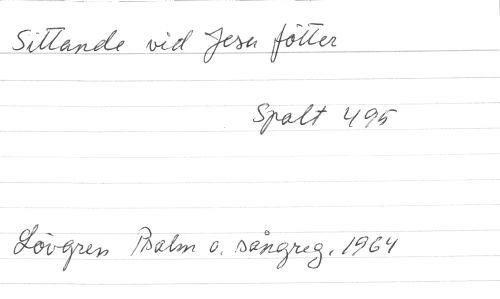 Sittande vid Jesu fötter
Spalt 495
Lövgren Psalm o. sångreg. 1964